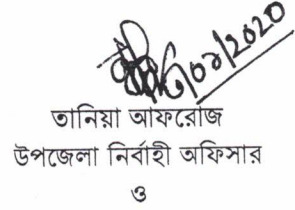 ০৯/২০২০
তানিয়া আফরোজ
উপজেলা নির্বাহী অফিসার
ও